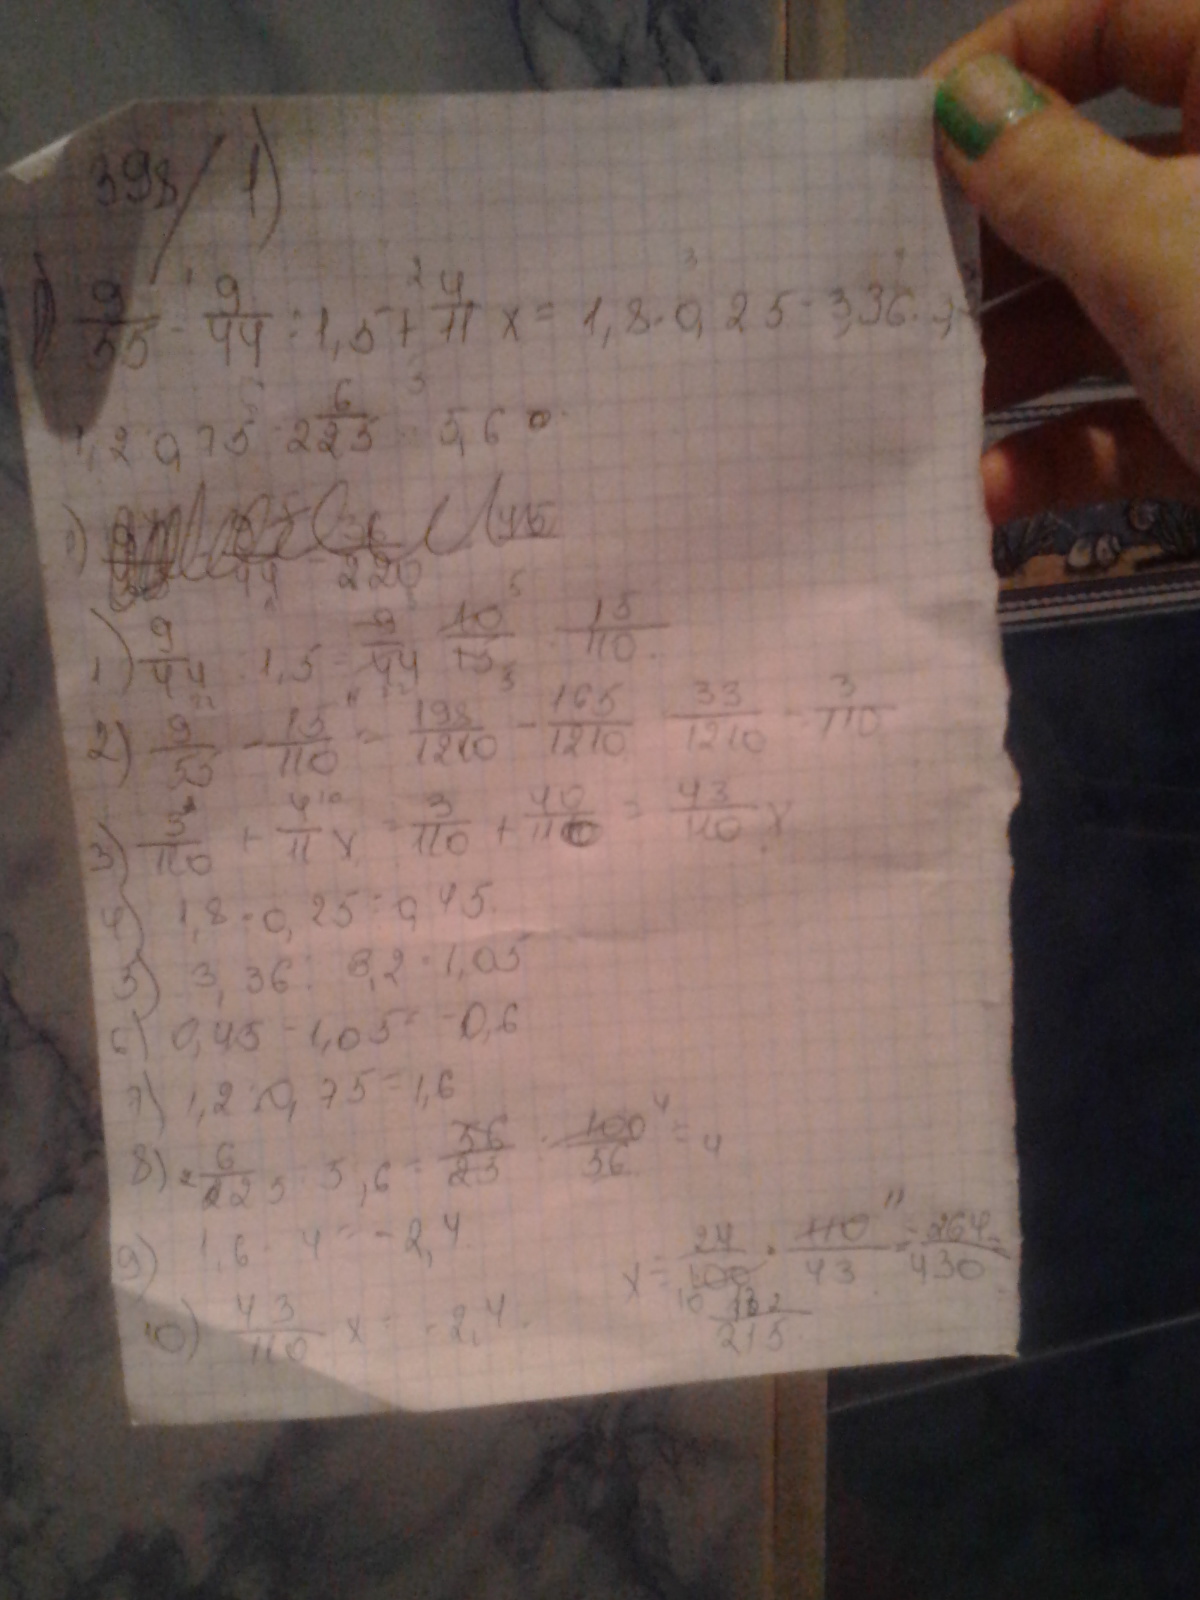 398/1)
1) 9/55 - 9/44 : 1,5 + 4/11 x = 1,8 · 0,25 - 3,36 :
1,2 : 0,75 - 2 6/25 : 5,6
1) 9/44 : 1,5 = 9/44 · 10/15 = 15/110
2) 9/55 - 15/110 = 198/1210 - 165/1210 = 33/1210 = 3/110
3) 3/110 + 4/11 x = 3/110 + 40/110 = 43/110 x
4) 1,8 · 0,25 = 0,45
5) 3,36 : 3,2 = 1,05
6) 0,45 - 1,05 = -0,6
7) 1,2 : 0,75 = 1,6
8) 2 6/25 : 5,6 = 56/25 · 100/56 = 4
9) 1,6 - 4 = -2,4
10) 43/110 x = -2,4
x = 24/100 · 110/43 = 264/430
132/215